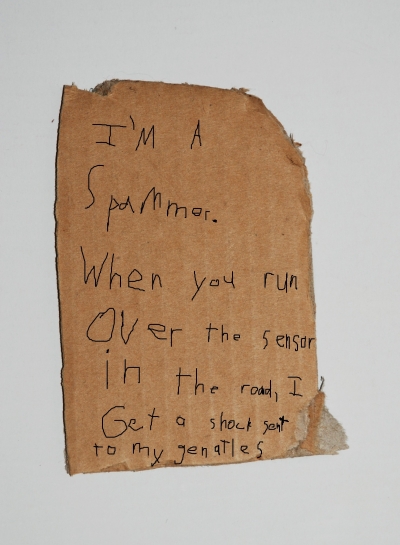 I'M A
SpaMmer.
When you run
OVer the sensor
in the road, I
Get a shock sent
to my genatles